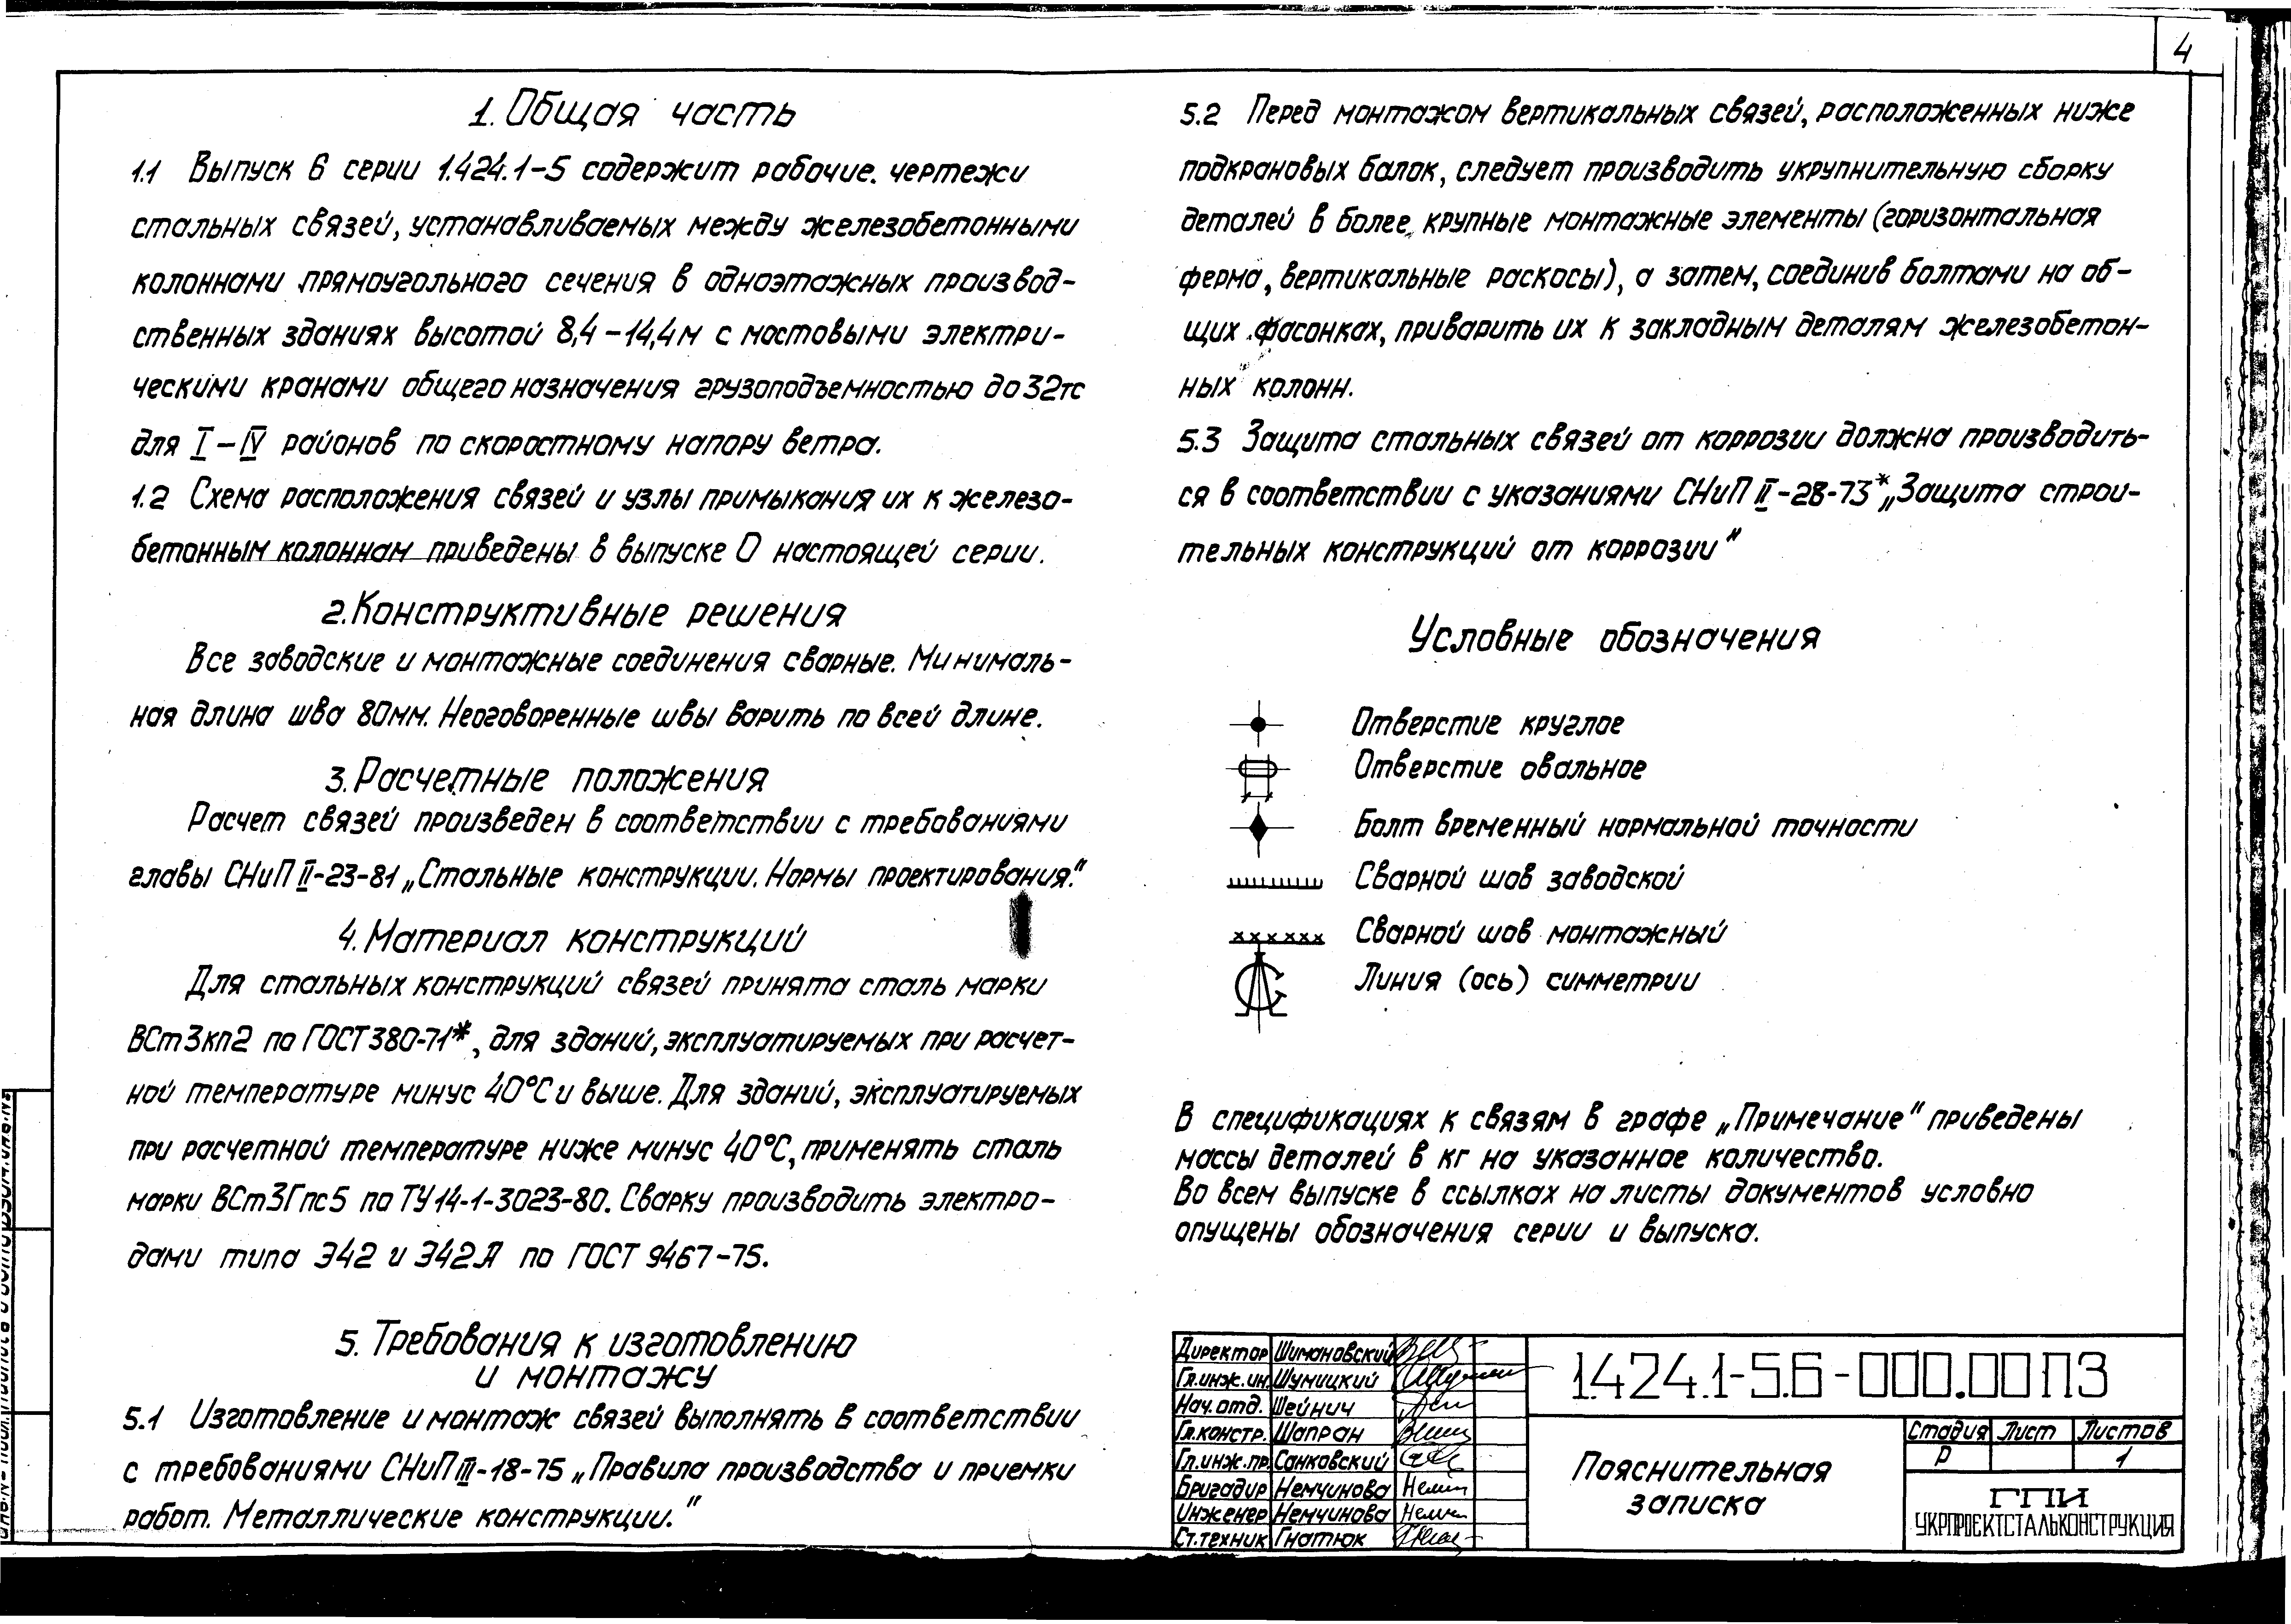 4
1. Общая часть
1.1 Выпуск 6 серии 1.424.1-5 содержит рабочие чертежи
стальных связей, устанавливаемых между железобетонными
колоннами прямоугольного сечения в одноэтажных производ-
ственных зданиях высотой 8,4-14,4м с мостовыми электри-
ческими кранами общего назначения грузоподъемностью до 32тс
для I-IV районов по скоростному напору ветра.
1.2 Схема расположения связей и узлы примыкания их к железо-
бетонным колоннам приведены в выпуске 0 настоящей серии.
2. Конструктивные решения
Все заводские и монтажные соединения сварные. Минималь-
ная длина шва 80мм. Неоговоренные швы варить по всей длине.
3. Расчетные положения
Расчет связей произведен в соответствии с требованиями
главы СНиП II-23-81 „Стальные конструкции. Нормы проектирования."
4. Материал конструкций
Для стальных конструкций связей принята сталь марки
ВСт3кп2 по ГОСТ 380-71*, для зданий, эксплуатируемых при расчет-
ной температуре минус 40°С и выше. Для зданий, эксплуатируемых
при расчетной температуре ниже минус 40°С, применять сталь
марки ВСт3Гпс5 по ТУ 14-1-3023-80. Сварку производить электро-
дами типа Э42 и Э42А по ГОСТ 9467-75.
5. Требования к изготовлению
и монтажу
5.1 Изготовление и монтаж связей выполнять в соответствии
с требованиями СНиП III-18-75 „Правила производства и приемки
работ. Металлические конструкции."
5.2 Перед монтажом вертикальных связей, расположенных ниже
подкрановых балок, следует производить укрупнительную сборку
деталей в более крупные монтажные элементы (горизонтальная
ферма, вертикальные раскосы), а затем, соединив болтами на об-
щих фасонках, приварить их к закладным деталям железобетон-
ных колонн.
5.3 Защита стальных связей от коррозии должна производить-
ся в соответствии с указаниями СНиП II-28-73* „Защита строи-
тельных конструкций от коррозии"
Условные обозначения
Отверстие круглое
Отверстие овальное
Болт временный нормальной точности
Сварной шов заводской
Сварной шов монтажный
Линия (ось) симметрии
В спецификациях к связям в графе „Примечание" приведены
массы деталей в кг на указанное количество.
Во всем выпуске в ссылках на листы документов условно
опущены обозначения серии и выпуска.
Директор Шимановский
Гл.инж.ин. Шумицкий
Нач.отд. Шейнич
Гл.констр. Шапран
Гл.инж.пр. Санковский
Бригадир Немчинова
Инженер Немчинова
Ст.техник Гнатюк
1.424.1-5.6-000.00ПЗ
Пояснительная
записка
Стадия Лист Листов
Р 1
ГПИ
УКРПРОЕКТСТАЛЬКОНСТРУКЦИЯ